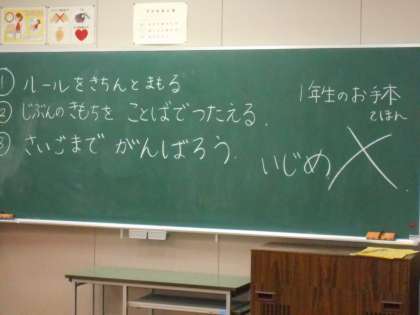 ① ルールをきちんとまもる
② じぶんのきもちを ことばでつたえる.
③ さいごまで がんばろう.
1年生のお手本
てほん
いじめ×